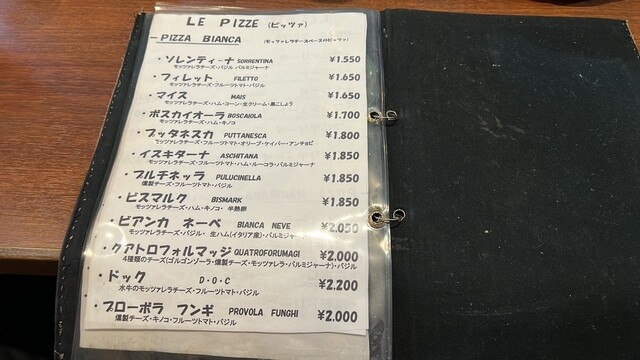 LE PIZZE (ピッツァ)
ーPIZZA BIANCA (モッツァレラチーズベースのピッツァ)
・ソレンティーナ SORRENTINA ¥1.550
モッツァレラチーズ・バジル パルミジャーナ
・フィレット FILETTO ¥1.650
モッツァレラチーズ・フルーツトマト・バジル
・マイス MAIS ¥1.650
モッツァレラチーズ・ハム・コーン・生クリーム・黒こしょう
・ボスカイオーラ BOSCAIOLA ¥1.700
モッツァレラチーズ・ハム・キノコ
・プッタネスカ PUTTANESCA ¥1.800
モッツァレラチーズ・フルーツトマト・オリーブ・ケイパー・アンチョビ
・イスキターナ ASCHITANA ¥1.850
モッツァレラチーズ・フルーツトマト・ハム・ルーコラ・パルミジャーナ
・プルチネッラ PULUCINELLA ¥1.850
燻製チーズ・フルーツトマト・バジル
・ビスマルク BISMARK ¥1.850
モッツァレラチーズ・ハム・キノコ・ 半熟卵
・ビアンカ ネーベ BIANCA NEVE ¥2.050
モッツァレラチーズ・バジル・ 生ハム(イタリア産)・パルミジャ
・クアトロフォルマッジ QUATROFORUMAGI ¥2.000
4種類のチーズ(ゴルゴンゾーラ・燻製チーズ・モッツァレラ・パルミジャーナ)・バジル
・ドック D・O・C ¥2.200
水牛のモッツァレラチーズ・フルーツトマト・バジル
・プローボラ フンギ PROVOLA FUNGHI ¥2.000
燻製チーズ・キノコ・フルーツトマト・バジル